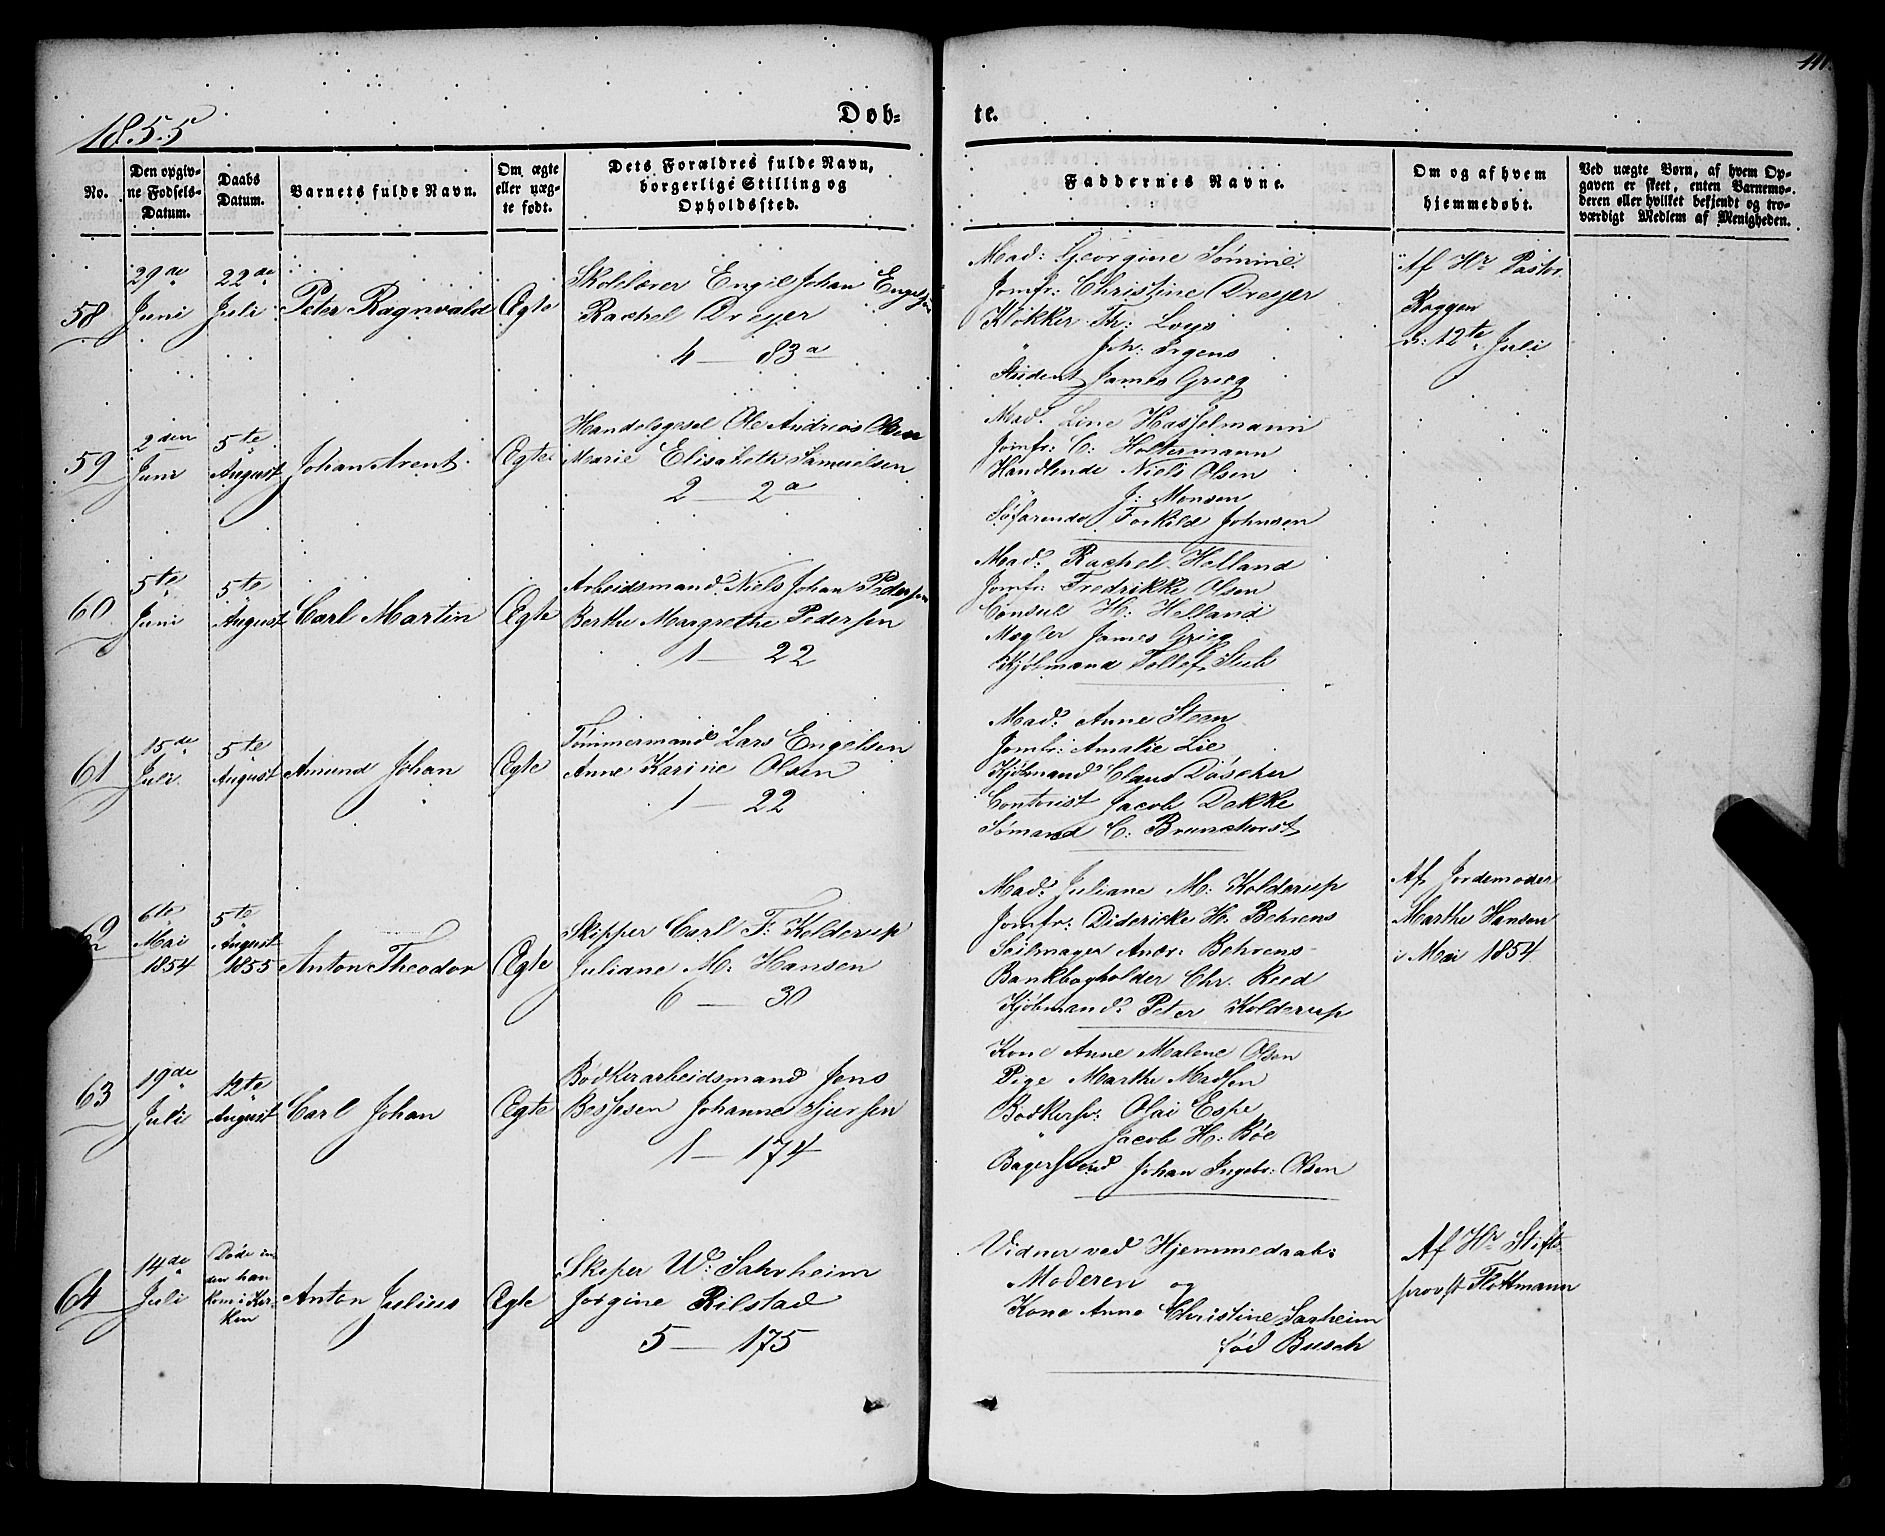 1855
Døb-
te.
No.
Den opgiv-
ne Fødsels-
Datum.
Daabs
Datum.
Barnets fulde Navn.
Om ægte
eller uæg-
te født.
Dets Forældres fulde Navn,
borgerlige Stilling og
Opholdssted.
Faddernes Navne.
Om og af hvem
hjemmedøbt.
Ved uægte Børn, af hvem Op-
gaven er skeet, enten Barnemo-
deren eller hvilket bekjendt og tro-
værdigt Medlem af Menigheden.
58
29de
Juni
22de
Juli
Peter Ragnvald
Ægte
Skolelærer Engil Johan Engelsen
Rachel Dreyer
4 — 83a
Mad: Georgine Sømme
Jomfr: Christine Dreyer
Klokker Th:
" Joh: Irgens
Student James Grieg
Af Hr Pastor
Roggen
d: 12te Juli
59
2den
Juni
5te
August
Johan Arent
Ægte
Handelsgesel Ole Andreas Olsen
Marie Elisabeth Samuelsen
2 — 2a
Mad. Line Hasselmann
Jomfr: C: Holtermann
Handlende Niels Olsen
" J: Monsen
Søfarende Torkild Johnsen
60
5te
Juni
5te
August
Carl Martin
Ægte
Arbeidsmand Niels Johan Pedersen
Berthe Margrethe Pedersen
1 — 22
Mad: Rachel Helland
Jomfr: Fredrikke Olsen
Consul H: Helland
Mægler James Grieg
Kjøbmand Tollef Stub
61
15de
Juli
5te
August
Amund Johan
Ægte
Tømmermand Lars Engelsen
Anne Karine Olsen
1 — 22
Mad: Anne Steen
Jomfr: Amalie Lie
Kjøbmand Claus Döscher
Contorist Jacob Dekke
Sømand C: Brunchorst
62
6te
Mai
1854
5te
August
1855
Anton Theodor
Ægte
Skipper Carl F: Kolderup
Juliane M: Hansen
6 — 30
Mad: Juliane M: Kolderup
Jomfr: Didericke H. Behrens
Seilmager Andr: Behrens
Bankbogholder Chr. Reed
Kjøbmand: Peter Kolderup
Af Jordemoder
Marthe Hansen
i Mai 1854
63
19de
Juli
12te
August
Carl Johan
Ægte
Bødkerarbeidsmand Jens
Bessesen Johanne Sjursen
1 — 174
Kone Anne Malene Olsen
Pige Marthe Madsen
Bødkersv: Olai Espe
" Jacob H: Böe
Bagersvend Johan Ingebr: Olsen
64
14de
Juli
Døde in-
den han
kom i Kir-
ken
Anton Julius
Ægte
Skiper W: Sahrheim
Jørgine Rilstad
5 — 175
Vidner ved Hjemmedaab:
Moderen og
Kone Anne Christine Sarheim
fød Busch
Af Hr Stifts-
provst Flottmann